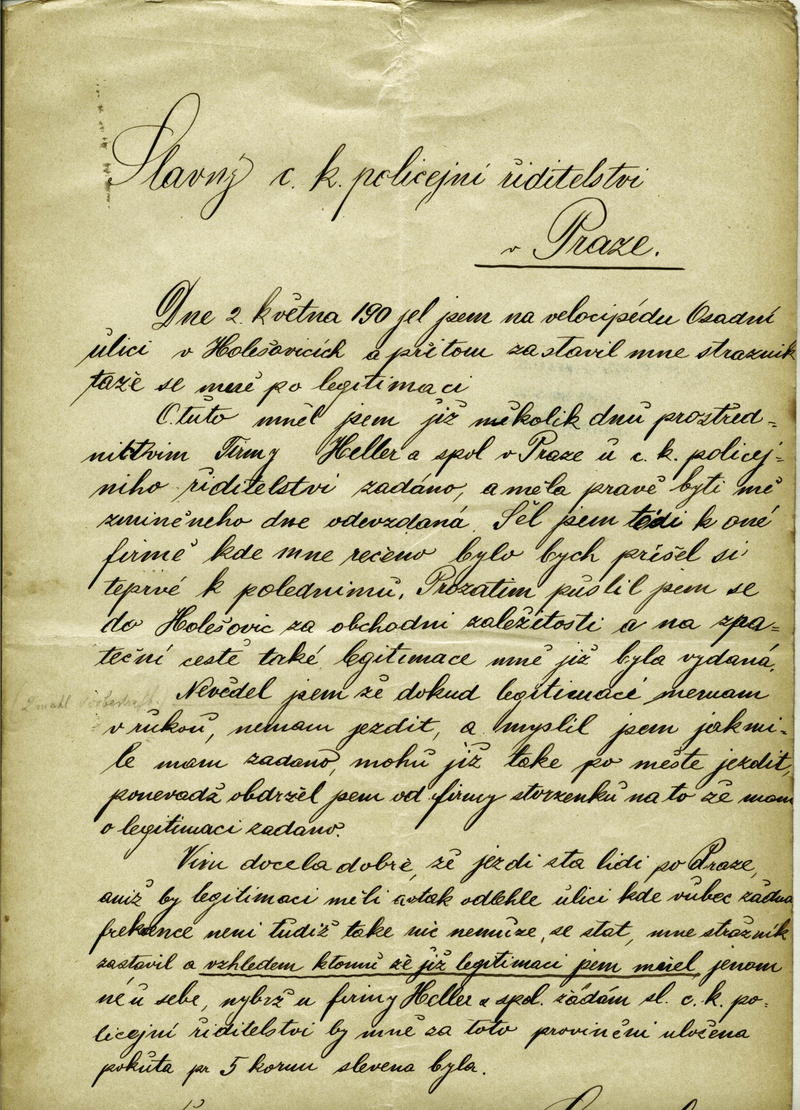 Slavný c. k. policejní řiditelství
v Praze.
Dne 2. května 190 jel jsem na velocipédu Osadní
ulicí v Holešovicích a přitom zastavil mne stražnik
taže se mně po legitimaci
O tuto mněl jsem již několik dnů prostřed=
nittvim Firmy Heller a spol v Praze u c. k. policej=
niho řiditelství zadáno, a měla pravě byti mě
zmíněneho dne odevzdaná. Šel jsem tedi k oné
firmě kde mne řečeno bylo bych přišel si
teprvé k polednimu. Prozatim pustil jsem se
do Holešovic za obchodni zaležitosti a na zpa=
teční cestě také legitimace mně již byla vydaná.
Nevěděl jsem že dokud legitimaci nemam
v rukou, nemam jezdit, a myslil jsem jakmi=
le mam zadano, mohu již take po městě jezdit,
poněvadž obdržel jsem od firmy stvrzenku na to že mam
o legitimaci zadano.
Vim docela dobrě, že jezdi sta lidi po Praze,
aniž by legitimaci měli avšak odlehle ulici kde vůbec žadna
frekvence neni tudiž take nic nemůže, se stat, mne stražnik
zastavil a vzhledem ktomu že již legitimaci jsem měl, jenom
ně u sebe, nybrž u firmy Heller a spol. žádám sl. c. k. po=
licejní řiditelství by mně za toto provinění uložena
pokuta pr 5 korun slevena byla.